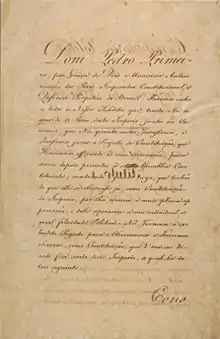 Dom Pedro Primei-
ro, por Graça de Deos e Unanime Acclama
ção dos Povos Imperador Constitucional, e
Defensor Perpetuo do Brasil: Fazemos saber
a todos os Nossos Subditos que tendo Nos
os Povos deste Imperio, juntos em Ca-
maras, que Nós quanto antes jurassemos, e
fizessemos jurar o Projecto de Constituição, que
Haviamos offerecido ás suas observações, para
serem depois presentes á Assembléa Cons-
tituinte
que
de que elle se observe já como Constituição
do Imperio, por lhes merecer a mais plena ap-
provação, e delle esperarem a sua individual, e
geral felicidade Politica: Nós Juramos o so-
bredito Projecto para o observarmos e fazermos
observar, como Constituição, que d'ora em di-
ante fica sendo deste Imperio, a qual he do
theor seguinte:
Cons